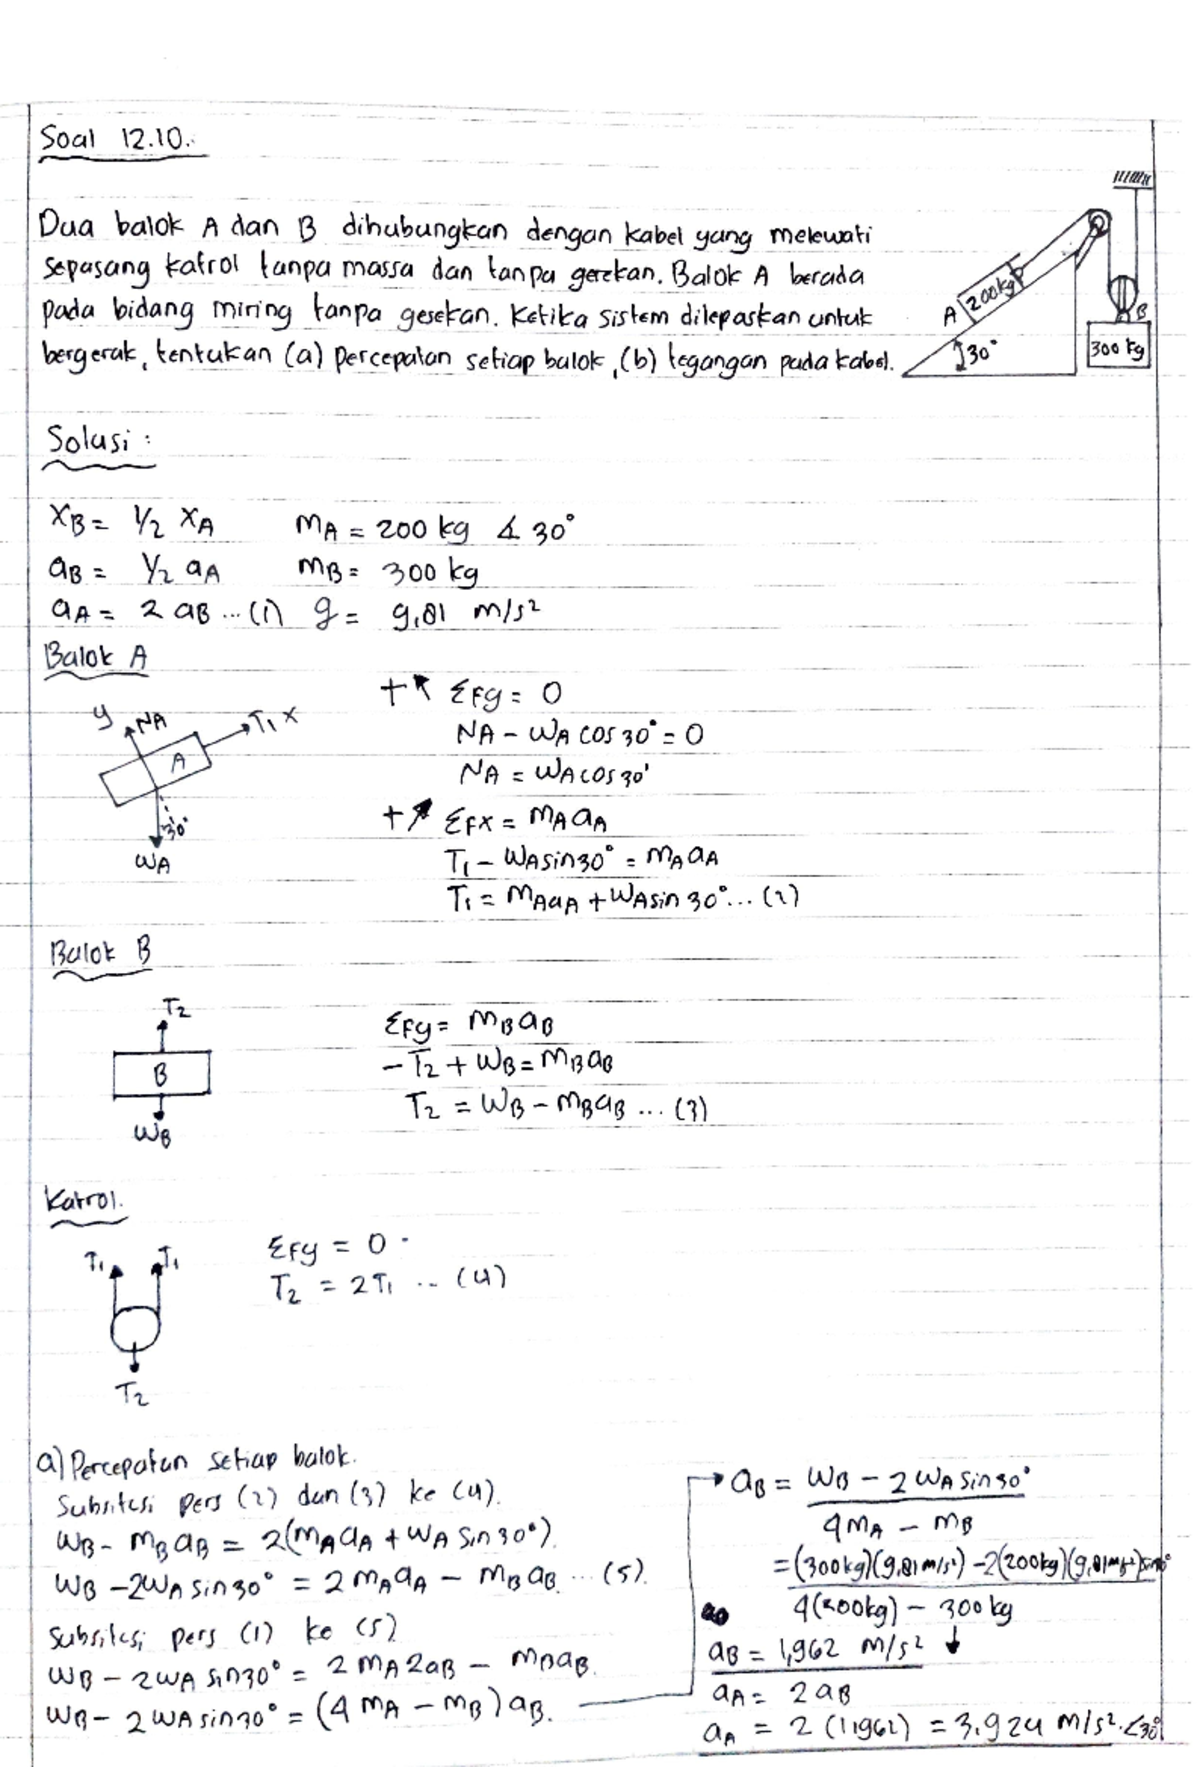 Soal 12.10.
Dua balok A dan B dihubungkan dengan kabel yang melewati
sepasang katrol tanpa massa dan tanpa gesekan. Balok A berada
pada bidang miring tanpa gesekan. Ketika sistem dilepaskan untuk
bergerak, tentukan (a) percepatan setiap balok, (b) tegangan pada kabel.
A 200kg
30°
B
300 kg
Solusi :
xB = 1/2 xA mA = 200 kg ∡ 30°
aB = 1/2 aA mB = 300 kg
aA = 2 aB ... (1) g = 9,81 m/s²
Balok A
y NA T1 x
A
30°
WA
+↖ ΣFy = 0
NA - WA cos 30° = 0
NA = WA cos 30°
+↗ ΣFx = mA aA
T1 - WA sin 30° = mA aA
T1 = mA aA + WA sin 30° ... (2)
Balok B
T2
B
WB
ΣFy = mB aB
- T2 + WB = mB aB
T2 = WB - mB aB ... (3)
Katrol.
T1 T1
T2
ΣFy = 0
T2 = 2T1 ... (4)
a) Percepatan setiap balok.
Subsitusi pers (2) dan (3) ke (4).
WB - mB aB = 2(mA aA + WA sin 30°)
WB - 2WA sin 30° = 2 mA aA - mB aB ... (5).
Subsitusi pers (1) ke (5)
WB - 2WA sin 30° = 2 mA 2aB - mB aB.
WB - 2WA sin 30° = (4 mA - mB) aB.
→ aB = WB - 2WA sin 30°
4mA - mB
= (300kg)(9,81m/s²) - 2(200kg)(9,81m/s²) sin 30°
4(200kg) - 300 kg
aB = 1,962 m/s² ↓
aA = 2 aB
aA = 2 (1,962) = 3,924 m/s². ∠30°